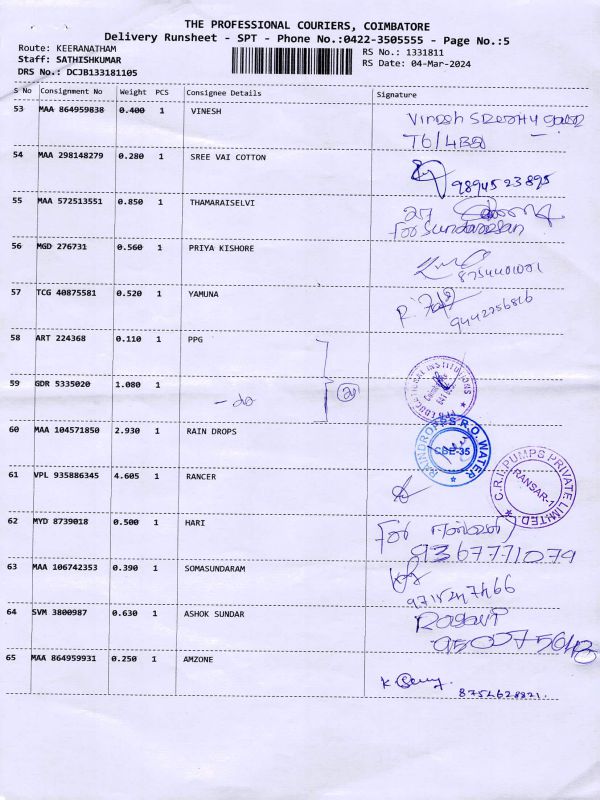 THE PROFESSIONAL COURIERS, COIMBATORE
Delivery Runsheet - SPT - Phone No.:0422-3505555 - Page No.:5
Route: KEERANATHAM RS No.: 1331811
Staff: SATHISHKUMAR RS Date: 04-Mar-2024
DRS No.: DCJB133181105
S No Consignment No Weight PCS Consignee Details Signature
53 MAA 864959838 0.400 1 VINESH Vinesh
T6/4B2
54 MAA 298148279 0.280 1 SREE VAI COTTON
9894523895
55 MAA 572513551 0.850 1 THAMARAISELVI
for Sundaresan
56 MGD 276731 0.560 1 PRIYA KISHORE
8754401001
57 TCG 40875581 0.520 1 YAMUNA
9442256816
58 ART 224368 0.110 1 PPG
EDUCATIONAL INSTITUTIONS
59 GDR 5335020 1.080 1 - do
60 MAA 104571850 2.930 1 RAIN DROPS RAINDROPSS R.O. WATER
CBE-35
61 VPL 935886345 4.605 1 RANCER C.R.I. PUMPS PRIVATE LIMITED
RANSAR-1
62 MYD 8739018 0.500 1 HARI For
9367771079
63 MAA 106742353 0.390 1 SOMASUNDARAM
64 SVM 3800987 0.630 1 ASHOK SUNDAR
65 MAA 864959931 0.250 1 AMZONE K
8754628821.